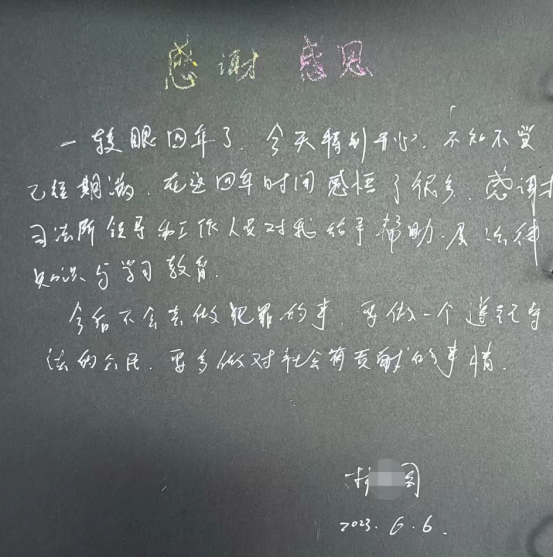 感谢 感恩
一转眼四年了,今天特别开心,不知不觉
已经期满,在这四年时间感悟了很多,感谢
司法所领导和工作人员对我给予帮助,及法律
知识与学习教育.
今后不会去做犯罪的事,要做一个遵纪守
法的公民,要多做对社会有贡献的事情.
2023.6.6.